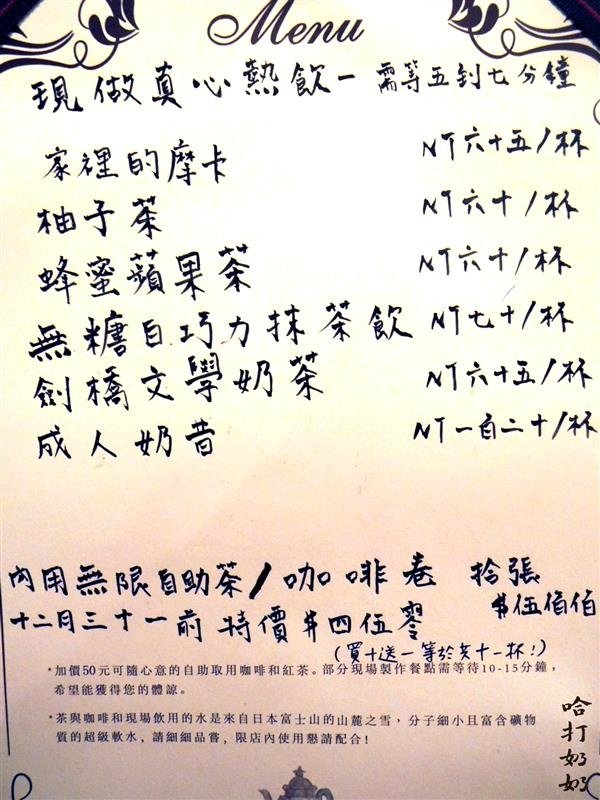 Menu
現做真心熱飲一需等五到七分鐘
家裡的摩卡 NT六十五/杯
柚子茶 NT六十/杯
蜂蜜蘋果茶 NT六十/杯
無糖白巧力抹茶飲 NT七十/杯
劍橋文學奶茶 NT六十五/杯
成人奶昔 NT一百二十/杯
內用無限自助茶/咖啡卷 拾張
$伍佰伯
十二月三十一前 特價$四伍零
(買十送一等於共十一杯!)
*加價50元可隨心意的自助取用咖啡和紅茶。部分現場製作餐點需等待10-15分鐘,
希望能獲得您的體諒。
*茶與咖啡和現場飲用的水是來自日本富士山的山麓之雪,分子細小且富含礦物
質的超級軟水,請細細品嘗,限店內使用懇請配合!
哈打奶奶